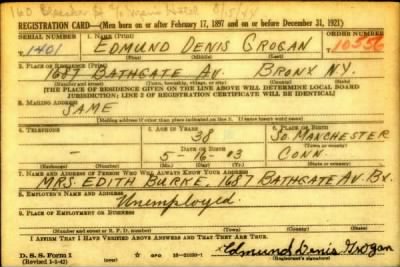 160 Bleecker St
REGISTRATION CARD—(Men born on or after February 17, 1897 and on or before December 31, 1921)
SERIAL NUMBER 1. NAME (Print) ORDER NUMBER
1401 EDMUND DENIS GROGAN 10556
(First) (Middle) (Last)
2. PLACE OF RESIDENCE (Print)
1687 BATHGATE AV. BRONX N.Y.
(Number and street) (Town, township, village, or city) (County) (State)
[THE PLACE OF RESIDENCE GIVEN ON THE LINE ABOVE WILL DETERMINE LOCAL BOARD
JURISDICTION; LINE 2 OF REGISTRATION CERTIFICATE WILL BE IDENTICAL]
3. MAILING ADDRESS
SAME
[Mailing address if other than place indicated on line 2. If same insert word same]
4. TELEPHONE 5. AGE IN YEARS 6. PLACE OF BIRTH
38 SO. MANCHESTER
DATE OF BIRTH (Town or county)
— 5-16-03 CONN.
(Exchange) (Number) (Mo.) (Day) (Yr.) (State or country)
7. NAME AND ADDRESS OF PERSON WHO WILL ALWAYS KNOW YOUR ADDRESS
MRS. EDITH BURKE, 1687 BATHGATE AV. BX.
8. EMPLOYER'S NAME AND ADDRESS
Unemployed.
9. PLACE OF EMPLOYMENT OR BUSINESS
(Number and street or R. F. D. number) (Town) (County) (State)
I AFFIRM THAT I HAVE VERIFIED ABOVE ANSWERS AND THAT THEY ARE TRUE.
D. S. S. Form 1 Edmund Denis Grogan
(Revised 1-5-42) GPO 16-21630-1 (Registrant's signature)